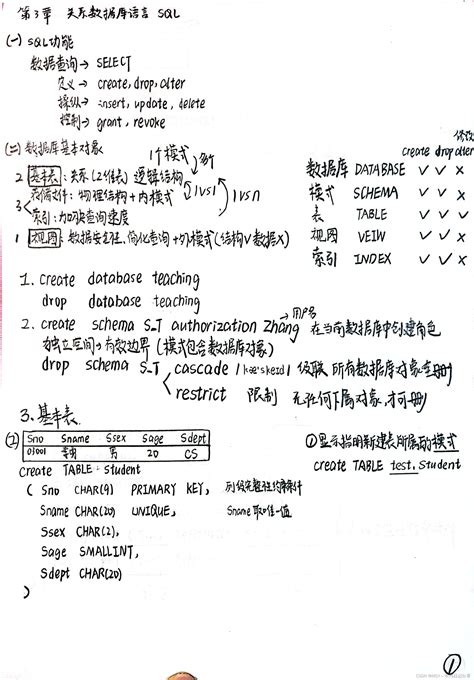 第3章 关系数据库语言 SQL
(一) SQL功能
数据查询→ SELECT
定义→ create, drop, alter
操纵→ insert, update, delete
控制→ grant, revoke
(二) 数据库基本对象
1个模式
多个
2 基本表: 关系(2维表) 逻辑结构
存储文件: 物理结构+内模式
1vs1
1vsn
3
索引: 加快查询速度
1 视图: 数据安全性、简化查询+外模式(结构∨数据×)
修改
create drop alter
数据库 DATABASE ✓ ✓ ×
模式 SCHEMA ✓ ✓ ×
表 TABLE ✓ ✓ ✓
视图 VEIW ✓ ✓ ×
索引 INDEX ✓ ✓ ×
1. create database teaching
drop database teaching
2. create schema S_T authorization Zhang →用户名 在当前数据库中创建角色
独立空间→有效边界 (模式包含数据库对象)
drop schema S_T
cascade 级联 所有数据库对象全删
restrict 限制 无任何下属对象,才可删
3. 基本表
(1)
Sno Sname Ssex Sage Sdept
男 20 CS
①显示指明新建表所属的模式
create TABLE test.Student
create TABLE Student
( Sno CHAR(9) PRIMARY KEY, 列级完整性约束条件
Sname CHAR(20) UNIQUE, Sname 取唯一值
Ssex CHAR(2),
Sage SMALLINT,
Sdept CHAR(20)
)
①